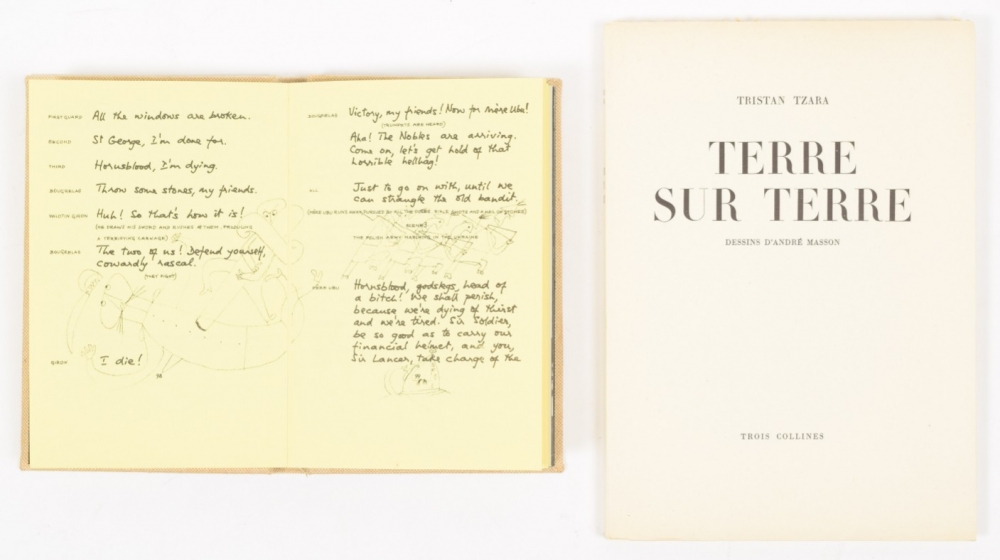 FIRST GUARD All the windows are broken.
SECOND St George, I'm done for.
THIRD Hornsblood, I'm dying.
BOUGRELAS Throw some stones, my friends.
GIRON Huh! So that's how it is!
(HE DRAWS HIS SWORD AND RUSHES AT THEM, PRODUCING
A TERRIFYING CARNAGE)
BOUGRELAS The two of us! Defend yourself,
cowardly rascal.
(THEY FIGHT)
GIRON I die!
56
BOUGRELAS Victory, my friends! Now for Mère Ubu!
(TRUMPETS ARE HEARD)
Aha! The Nobles are arriving.
Come on, let's get hold of that
horrible hellhag!
ALL Just to go on with, until we
can strangle the old bandit.
SCENE 3
THE POLISH ARMY MARCHING IN THE UKRAINE
PERE UBU Hornsblood, godslegs, head of
a bitch! We shall perish,
because we're dying of thirst
and we're tired. Sir Soldier,
be so good as to carry our
financial helmet, and you,
Sir Lancer, take charge of the
TRISTAN TZARA
TERRE
SUR TERRE
DESSINS D'ANDRÉ MASSON
TROIS COLLINES